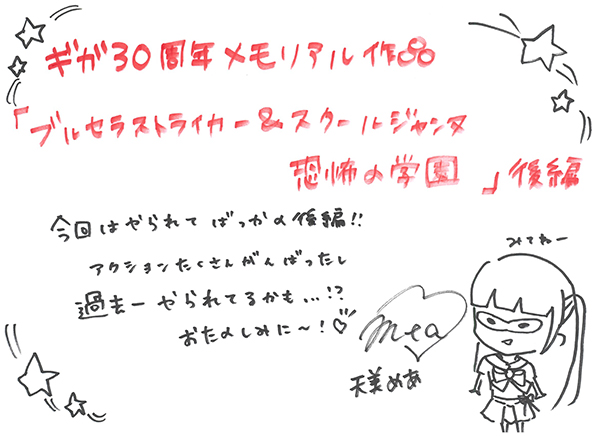 ギガ30周年メモリアル作品
「ブルセラストライカー&スクールジャンヌ
恐怖の学園」後編
今回はやられてばっかの後編!!
アクションたくさんがんばったし
過去一やられてるかも…!?
おたのしみに〜!♡
mea
天美めあ
みてねー